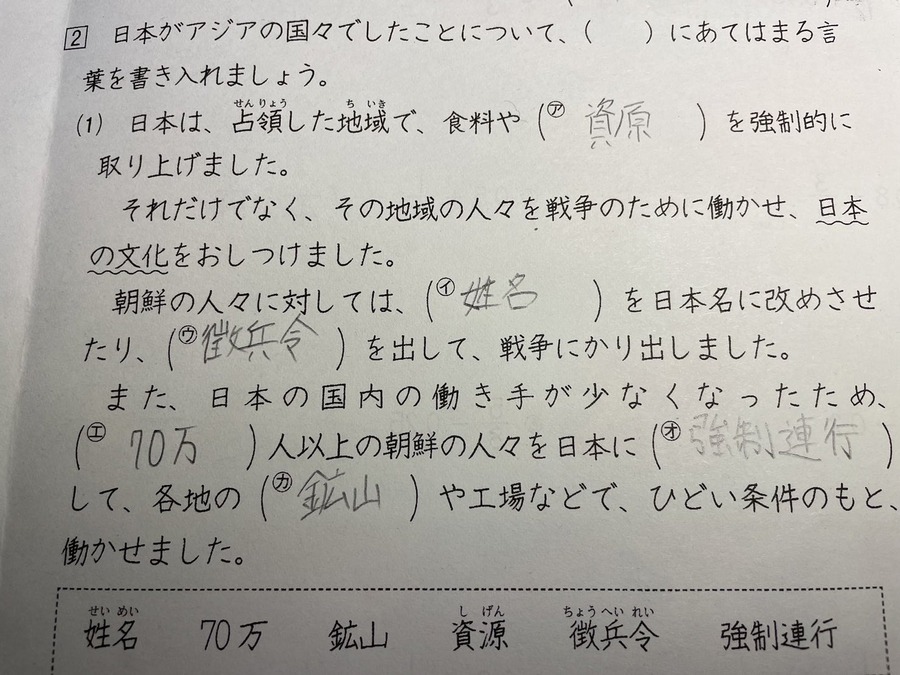 2 日本がアジアの国々でしたことについて、(　　)にあてはまる言
葉を書き入れましょう。
せんりょう ちいき
(1) 日本は、占領した地域で、食料や(㋐ 資原 )を強制的に
取り上げました。
それだけでなく、その地域の人々を戦争のために働かせ、日本
の文化をおしつけました。
朝鮮の人々に対しては、(㋑ 姓名 )を日本名に改めさせ
たり、(㋒ 徴兵令 )を出して、戦争にかり出しました。
また、日本の国内の働き手が少なくなったため、
(㋓ 70万 )人以上の朝鮮の人々を日本に(㋔ 強制連行 )
して、各地の(㋕ 鉱山 )や工場などで、ひどい条件のもと、
働かせました。
せいめい しげん ちょうへいれい
姓名 70万 鉱山 資源 徴兵令 強制連行